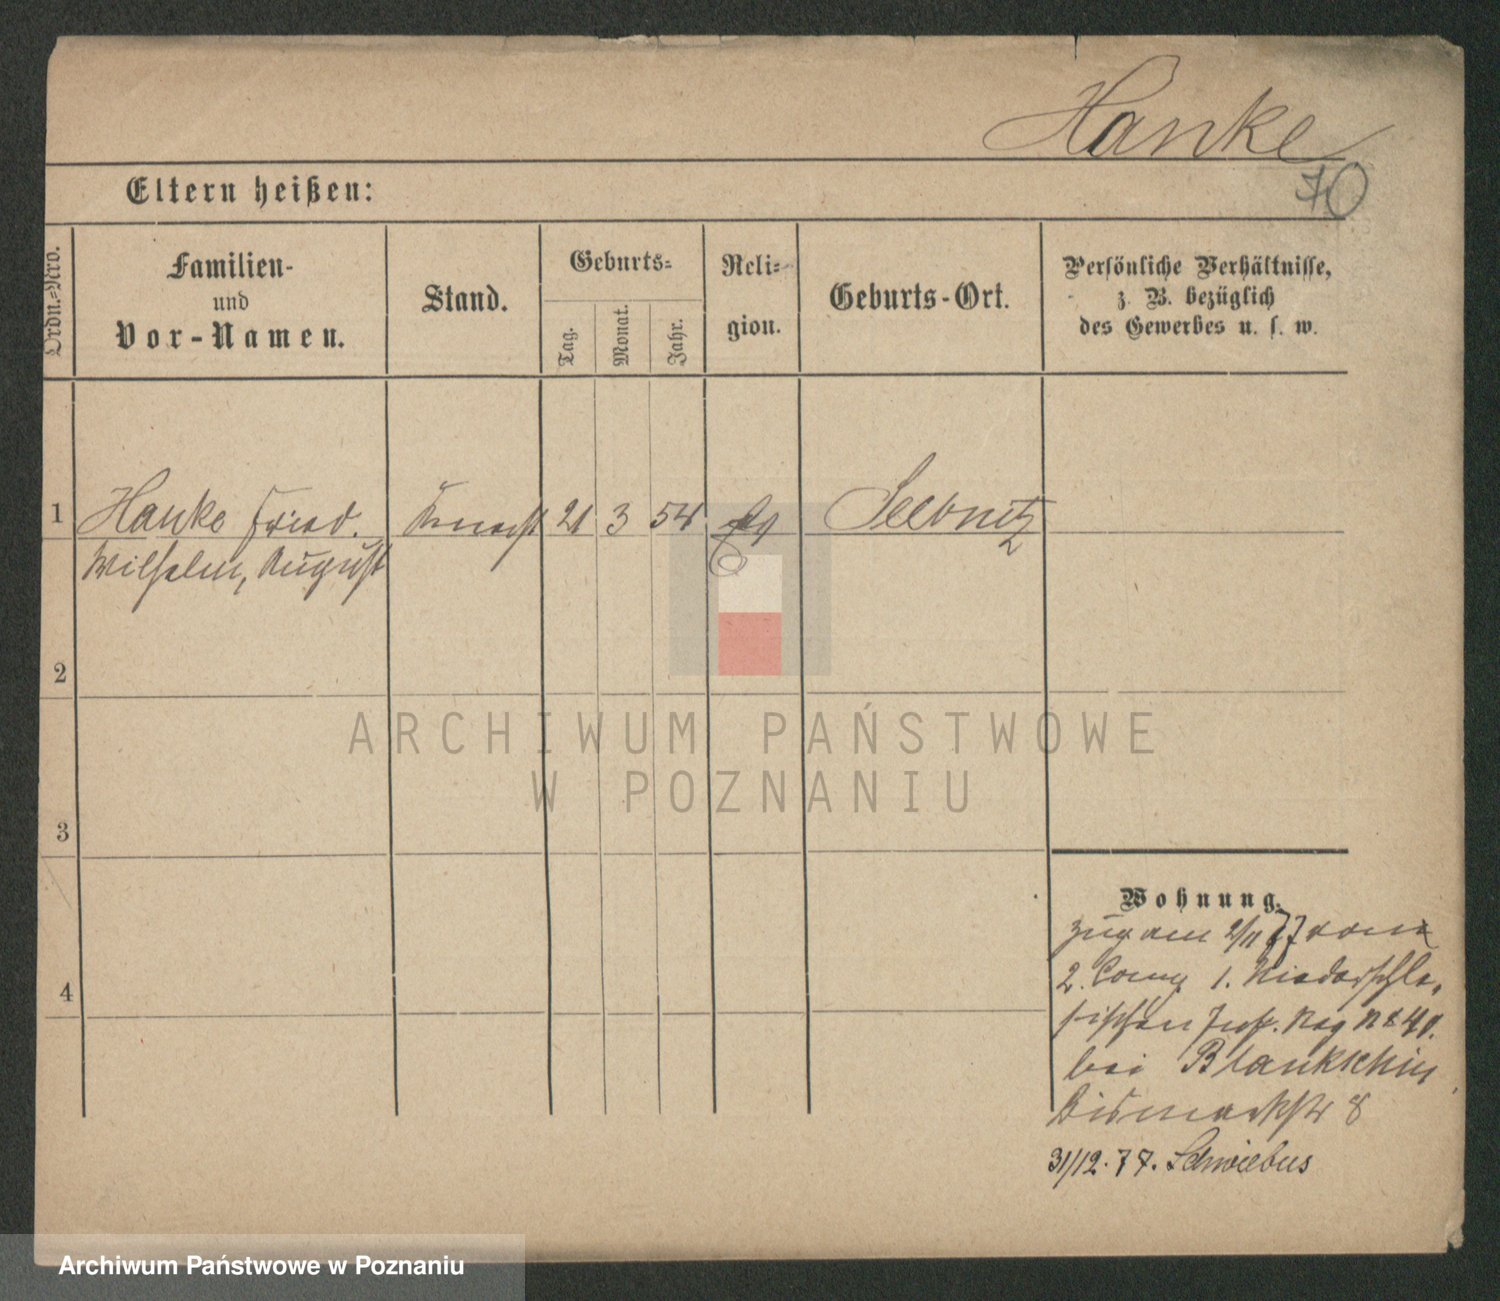 Hanke
70
Eltern heißen:
Ordn.-Nro.
Familien-
und
Vor-Namen.
Stand.
Geburts-
Tag.
Monat.
Jahr.
Reli-
gion.
Geburts-Ort.
Persönliche Verhältnisse,
z. B. bezüglich
des Gewerbes u. s. w.
1 Hanke Fried. Knecht 21 3 54
Wilhelm, August
2
3
4
Wohnung.
zug am 2/11 77 vom
2. Comp 1. Niederschle-
sischen Inf. Reg
bei
Bismarckstr 8
31/12. 77. Schwiebus
ARCHIWUM PAŃSTWOWE
W POZNANIU
Archiwum Państwowe w Poznaniu